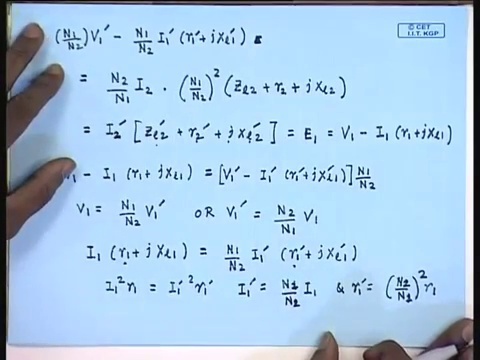 © CET
I.I.T. KGP
(N1/N2) V1′ − N1/N2 I1′ (r1′ + j xl1′)
= N2/N1 I2 · (N1/N2)² (Zl2 + r2 + j xl2)
= I2′ [Zl2′ + r2′ + j xl2′] = E1 = V1 − I1 (r1 + j xl1)
− I1 (r1 + j xl1) = [V1′ − I1′ (r1′ + j xl1′)] N1/N2
V1 = N1/N2 V1′ OR V1′ = N2/N1 V1
I1 (r1 + j xl1) = N1/N2 I1′ (r1′ + j xl1′)
I1² r1 = I1′² r1′ I1′ = N1/N2 I1 & r1′ = (N2/N1)² r1